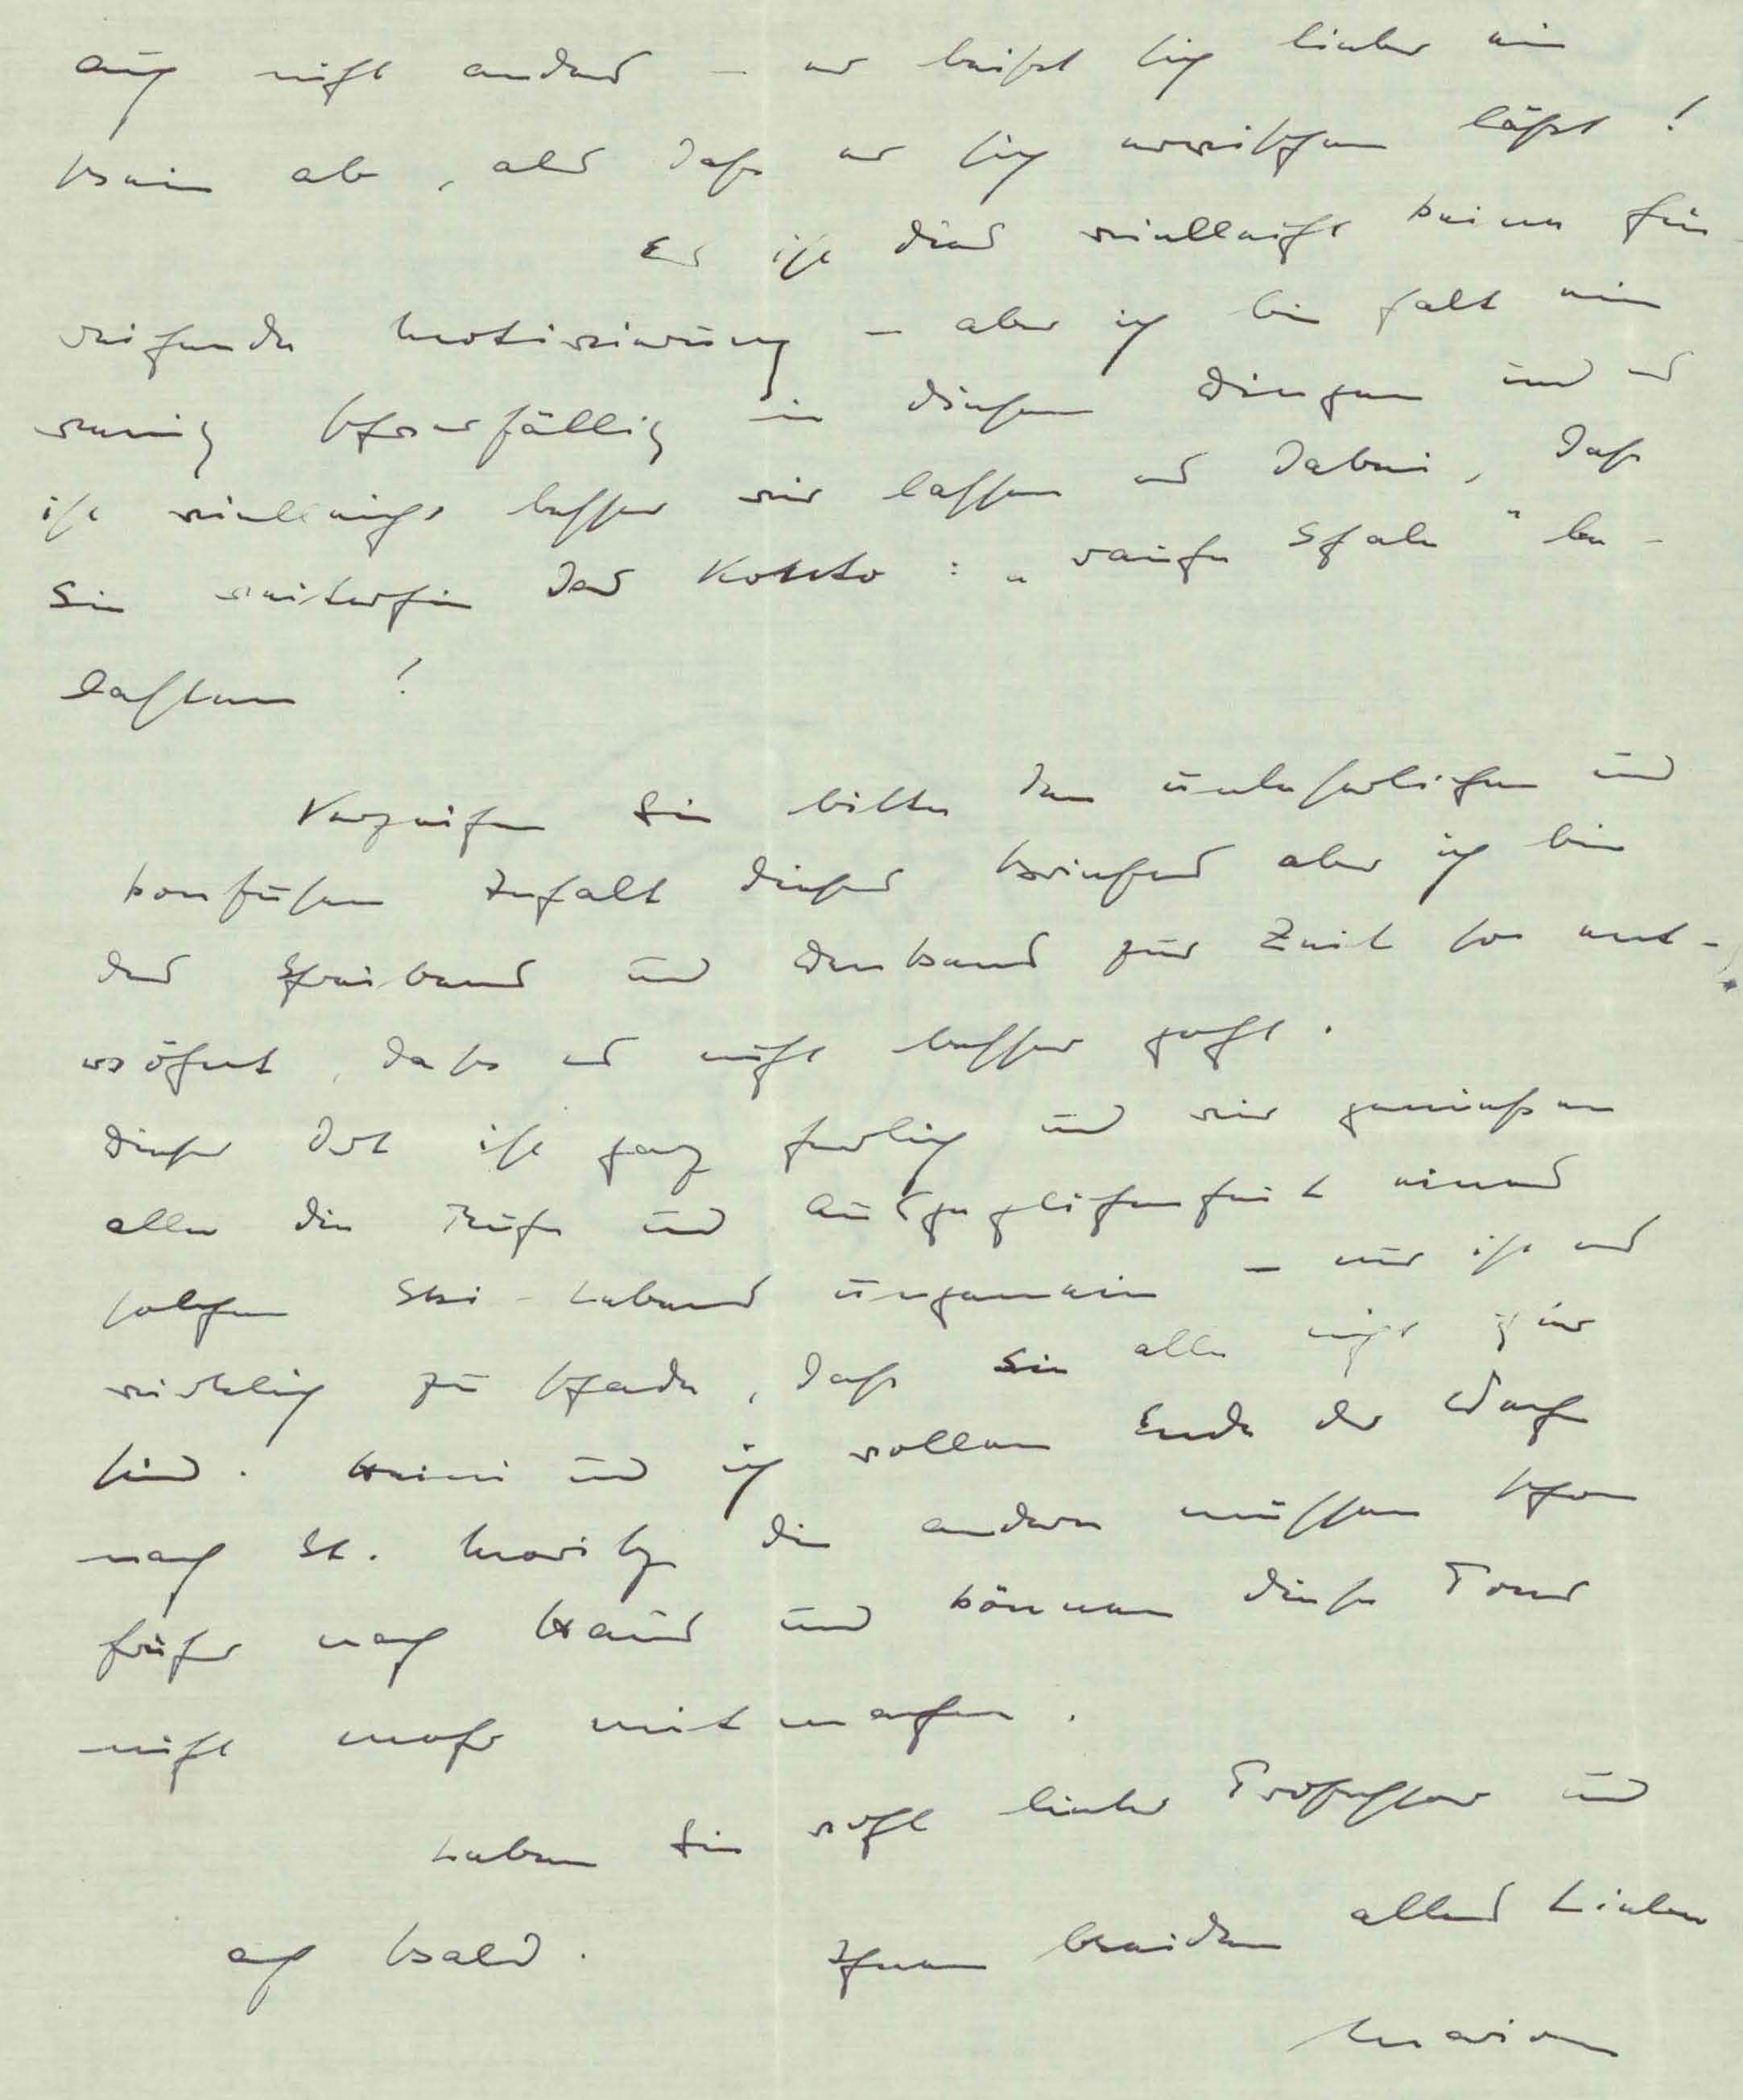 auch nicht anders – er beisst sich lieber ein
Bein ab, als dass er sich erwischen lässt!
Es ist dies vielleicht keine hin
reichende Motivierung – aber ich bin halt ein
wenig schwerfällig in diesen Dingen und es
ist vielleicht besser wir lassen es dabei, dass
Sie weiterhin das Konto: „rauhe Schale" be-
lasten!
Verzeihen Sie bitte den unleserlichen und
konfusen Inhalt dieses Briefes aber ich bin
des Schreibens und Denkens zur Zeit so ent-
wöhnt, dass es nicht besser geht.
Dieser Ort ist ganz herrlich und wir geniessen
alle die Ruhe und Ausgeglichenheit eines
solchen Ski-Lebens ungemein – nur ist es
wirklich zu schade, dass Sie alle nicht hier
sind. Heini und ich wollen Ende der Woche
nach St. Moritz die andern müssen schon
früher nach Haus und können diese Tour
nicht mehr mitmachen.
Leben Sie wohl lieber Professor und
auf bald. Ihnen beiden alles Liebe
Marion